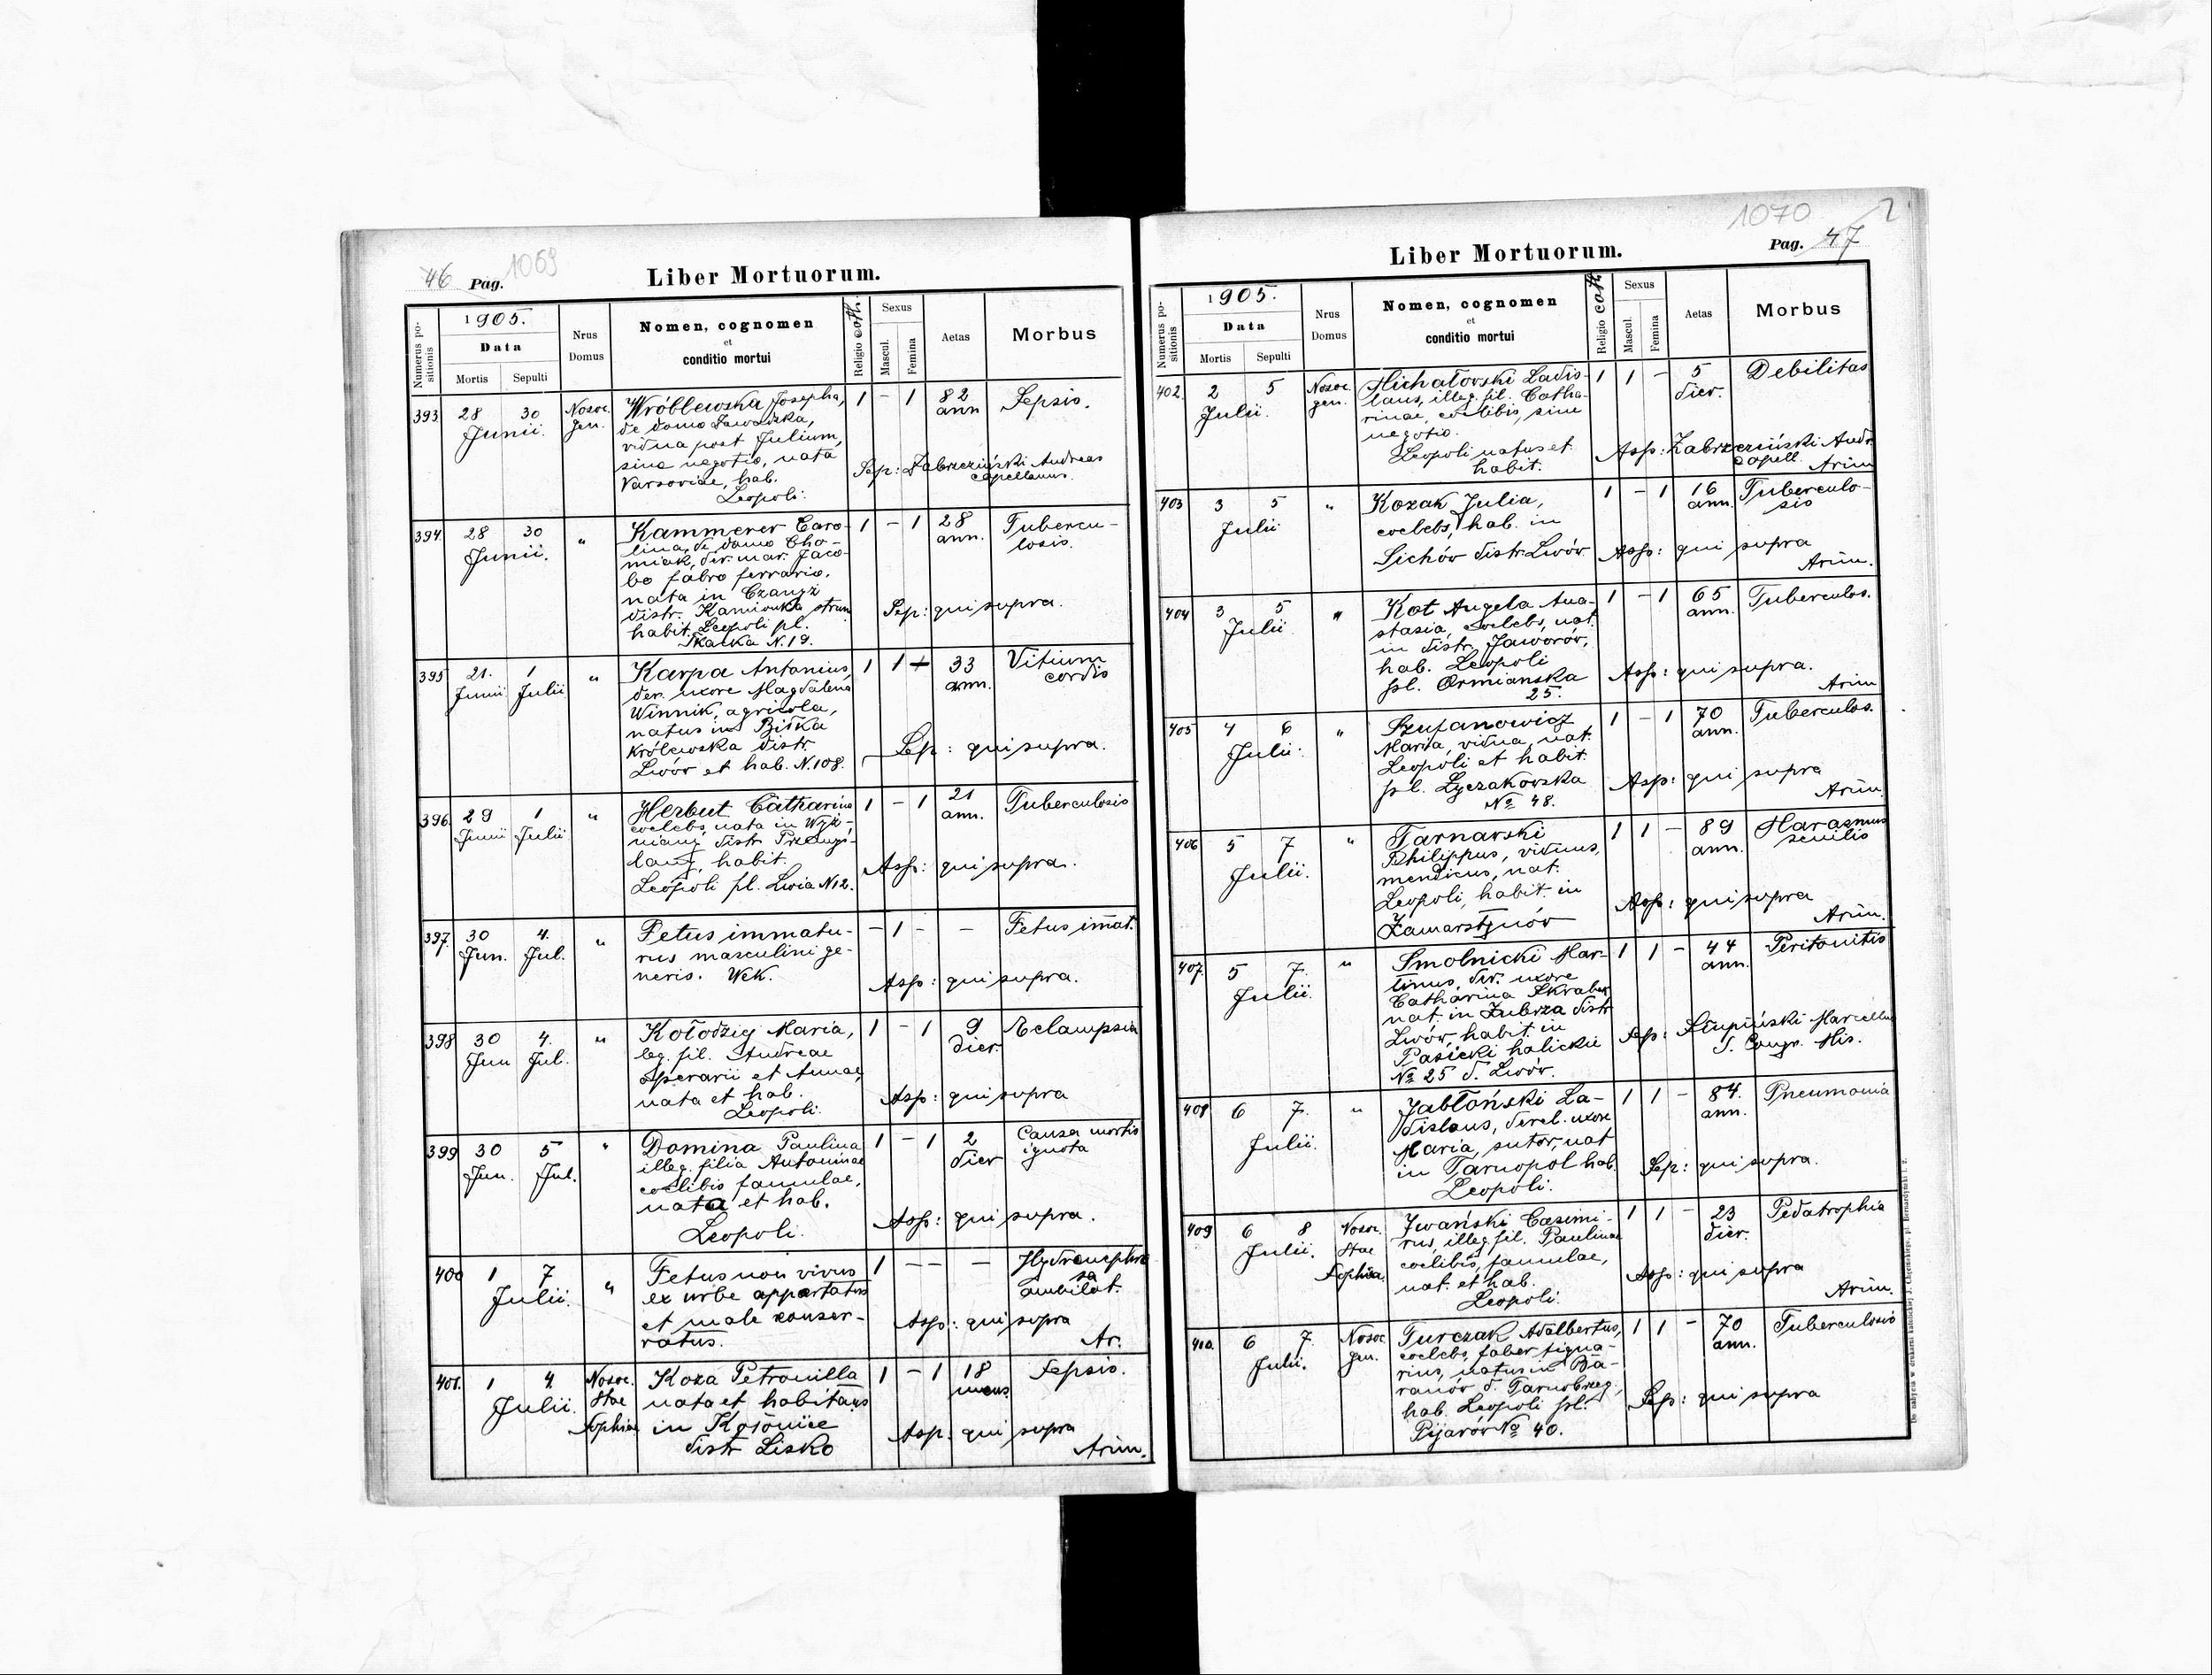 46 Pag. 1069
Liber Mortuorum.
Numerus positionis
1905.
Data
Mortis
Sepulti
Nrus Domus
Nomen, cognomen
et
conditio mortui
Religio cath.
Sexus
Mascul.
Femina
Aetas
Morbus
393 28 30 Junii. Nosoc. gen.
Wróblewska Josepha,
de domo Zawadzka,
vidua post Julium,
sine negotio, nata
Varsoviae, hab.
Leopoli.
1 - 1 82 ann Sepsis.
Sep: Zabrzeziński Andreas
capellanus.
394. 28 30 Junii. "
Kammerer Caro-
lina, de domo Cho-
miak, der. mar. Jaco-
bo fabro ferrario,
nata in Czanyż
distr. Kamionka strum
habit. Leopoli pl.
Skałka N. 19.
1 - 1 28 ann. Tubercu-
losis.
Sep: qui supra.
395 21. Junii 1 Julii "
Karpa Antonius,
der. uxore Magdalena
Winnik, agricola,
natus in Biłka
Królewska distr.
Lwów et hab. N. 108.
1 1 + 33 ann. Vitium
cordis
Sep: qui supra.
396. 29 Junii 1 Julii "
Herbut Catharina
coelebs, nata in Wyż-
niany distr. Przemyś-
lany, habit.
Leopoli pl. Lwia N 12.
1 - 1 21 ann. Tuberculosis
Asp: qui supra.
397. 30 Jun. 4. Jul. "
Fetus immatu-
rus masculini ge-
neris. Wek.
- 1 - - Fetus imat.
Asp: qui supra.
398 30 Jun 4. Jul. "
Kołodziej Maria,
leg. fil. Andreae
operarii et Annae,
nata et hab.
Leopoli.
1 - 1 9 dier. Eclampsia
Asp: qui supra
399 30 Jun. 5 Jul. "
Domina Paulina
illeg. filia Antoninae
coelibis famulae,
nata et hab.
Leopoli.
1 - 1 2 dier Causa mortis
ignota
Asp: qui supra.
400 1 7 Julii. "
Fetus non vivus
ex urbe apportatus
et male conser-
vatus.
1 - - -
Asp: qui supra
Ar.
401. 1 4. Julii. Nosoc. Stae Sophiae
Koza Petronilla
nata et habitans
in
distr Lisko
1 - 1 18 mens Sepsis.
Asp. qui supra
Arim.
1070
Liber Mortuorum.
Pag. 47
Numerus positionis
1905.
Data
Mortis
Sepulti
Nrus Domus
Nomen, cognomen
et
conditio mortui
Religio cath
Sexus
Mascul.
Femina
Aetas
Morbus
402. 2 5 Julii. Nosoc. gen.
Michałowski Ladis-
laus, illeg. fil. Catha-
rinae, coelibis, sine
negotio.
Leopoli natus et
habit.
1 1 - 5 dier. Debilitas
Asp: Zabrzeziński Andr.
capell. Arim
403 3 5 Julii "
Kozak Julia,
coelebs, hab. in
Sichów distr. Lwów
1 - 1 16 ann. Tuberculo-
sis
Asp: qui supra
Arim.
404 3 5 Julii "
Kot Angela Ana-
stasia, coelebs, nat.
in distr. Jaworów,
hab. Leopoli
pl. Ormianska
25.
1 - 1 65 ann. Tuberculos.
Asp: qui supra.
Arim
405 4 6 Julii "
Szufanowicz
Maria, vidua, nat.
Leopoli et habit.
pl. Łyczakowska
No 48.
1 - 1 70 ann. Tuberculos.
Asp: qui supra
Arim.
406 5 7 Julii. "
Tarnawski
Philippus, viduus,
mendicus, nat.
Leopoli, habit. in
Zamarstynów
1 1 - 89 ann. Marasmus
senilis
Asp: qui supra
Arim.
407. 5 7. Julii. "
Smolnicki Mar-
tinus, der. uxore
Catharina Skrabek
nat. in Zubrza distr
Lwów, habit. in
Pasieki halickie
No 25 d. Lwów.
1 1 - 44 ann. Peritonitis
Sep: Słupiński Marcellus
S. Congr. Mis.
408 6 7. Julii. "
Jabłoński La-
dislaus, derel. uxore
Maria, sutor, nat
in Tarnopol hab.
Leopoli.
1 1 - 84. ann. Pneumonia
Sep: qui supra.
409 6 8 Julii. Nosoc. Stae Sophiae
Iwański Casimi-
rus, illeg. fil. Paulinae
coelibis, famulae,
nat. et hab.
Leopoli.
1 1 - 23 dier. Pedatrophia
Asp: qui supra
Arim.
410. 6 7. Julii. Nosoc gen.
Turczak Adalbertus,
coelebs, faber ligna-
rius, natus in Ba-
ranów d. Tarnobrzeg,
hab. Leopoli pl.
Pijarów No 40.
1 1 - 70 ann. Tuberculosis
Sep: qui supra